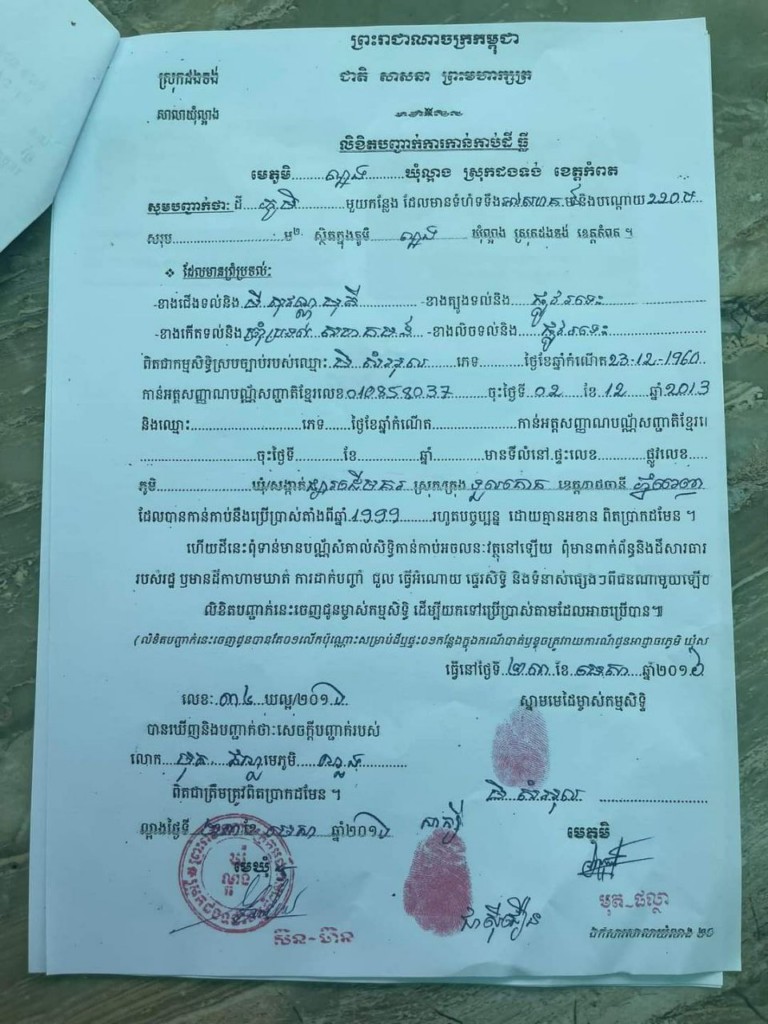 ព្រះរាជាណាចក្រកម្ពុជា
ស្រុកដងទង់
ជាតិ សាសនា ព្រះមហាក្សត្រ
សាលាឃុំល្អាង
លិខិតបញ្ជាក់ការកាន់កាប់ដី ធ្លី
មេភូមិ.........ល្អាង.........ឃុំល្អាង ស្រុកដងទង់ ខេត្តកំពត
សូមបញ្ជាក់ថា: ដី....ភូមិ..........មួយកន្លែង ដែលមានទំហំទទឹង ម៉ និងបណ្ដោយ ២២០ម
សរុប..............ម២. ស្ថិតក្នុងភូមិ......ល្អាង...... ឃុំល្អាង ស្រុកដងទង់ ខេត្តកំពត ។
❖ ដែលមានព្រំប្រទល់:
-ខាងជើងទល់និង ដី សុវណ្ណ -ខាងត្បូងទល់និង....ផ្លូវ រទេះ
-ខាងកើតទល់និង ព្រំប្រទល់ -ខាងលិចទល់និង......ផ្លូវ រទេះ
ពិតជាកម្មសិទ្ធិស្របច្បាប់របស់ឈ្មោះ ភេទ............ថ្ងៃខែឆ្នាំកំណើត 23-12-1960
កាន់អត្តសញ្ញាណបណ្ណ័សញ្ជាតិខ្មែរលេខ 010858037 ចុះថ្ងៃទី 02 ខែ 12 ឆ្នាំ 2013
និងឈ្មោះ...........................ភេទ.........ថ្ងៃខែឆ្នាំកំណើត...................កាន់អត្តសញ្ញាណបណ្ណ័សញ្ជាតិខ្មែរ
.........................ចុះថ្ងៃទី..............ខែ..............ឆ្នាំ...............មានទីលំនៅ ផ្ទះលេខ..............ផ្លូវលេខ
ភូមិ........................ឃុំ/សង្កាត់ ផ្សារដើមគរ ស្រុក/ក្រុង ទួលគោក ខេត្ត/រាជធានី ភ្នំពេញ
ដែលបានកាន់កាប់នឹងប្រើប្រាស់តាំងពីឆ្នាំ 1999 រហូតបច្ចុប្បន្ន ដោយគ្មានអខាន ពិតប្រាកដមែន ។
ហើយដីនេះពុំទាន់មានបណ្ណ័សំគាល់សិទ្ធិកាន់កាប់អចលនៈវត្ថុនៅឡើយ ពុំមានពាក់ព័ន្ធនិងដីសារធារ
របស់រដ្ឋ ឬមានដីកាហាមឃាត់ ការដាក់បញ្ចាំ ជួល ធ្វើអំណោយ ផ្ទេរសិទ្ធិ និងទំនាស់ផ្សេងៗពីជនណាមួយឡើ
លិខិតបញ្ជាក់នេះចេញជូនម្ចាស់កម្មសិទ្ធិ ដើម្បីយកទៅប្រើប្រាស់តាមដែលអាចប្រើបាន៕
(លិខិតបញ្ជាក់នេះចេញជូនបានតែ០១លើកប៉ុណ្ណោះសម្រាប់ដីឬផ្ទះ០១កន្លែងក្នុងករណីបាត់ឬខូចត្រូវរាយការណ៍ជូនអាជ្ញាធរភូមិ ឃុំ
ធ្វើនៅថ្ងៃទី ២៣ ខែ មេសា ឆ្នាំ២០១៦
លេខ: ៣៤ ឃល្អ/២០១៦
ស្នាមមេដៃម្ចាស់កម្មសិទ្ធិ
បានឃើញនិងបញ្ជាក់ថា: សេចក្ដីបញ្ជាក់របស់
លោក មុត ផល្លា មេភូមិ ល្អាង
ពិតជាត្រឹមត្រូវពិតប្រាកដមែន ។
ល្អាងថ្ងៃទី ២៣ ខែ មេសា ឆ្នាំ២០១៦
សាក្សី
មេភូមិ
មេឃុំ
មុត-ផល្លា
ស៊ន-ប៊ន
ឯកសារសាលាឃុំល្អាង ២០